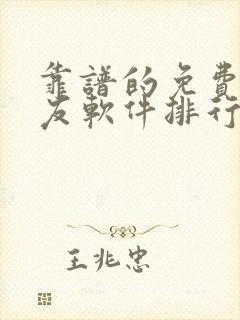 靠譜的免費
友軟件排行
王兆忠